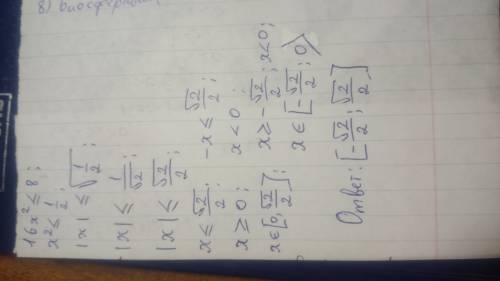 8) биосферный
16x² ≤ 8;
x² ≤ 1/2;
|x| ≤ √(1/2);
|x| ≤ 1/√2;
|x| ≤ √2/2;
x ≤ √2/2; -x ≤ √2/2;
x ≥ 0; x < 0;
x ∈ [0; √2/2]; x ≥ -√2/2; x < 0;
x ∈ [-√2/2; 0)
Ответ: [-√2/2; √2/2]